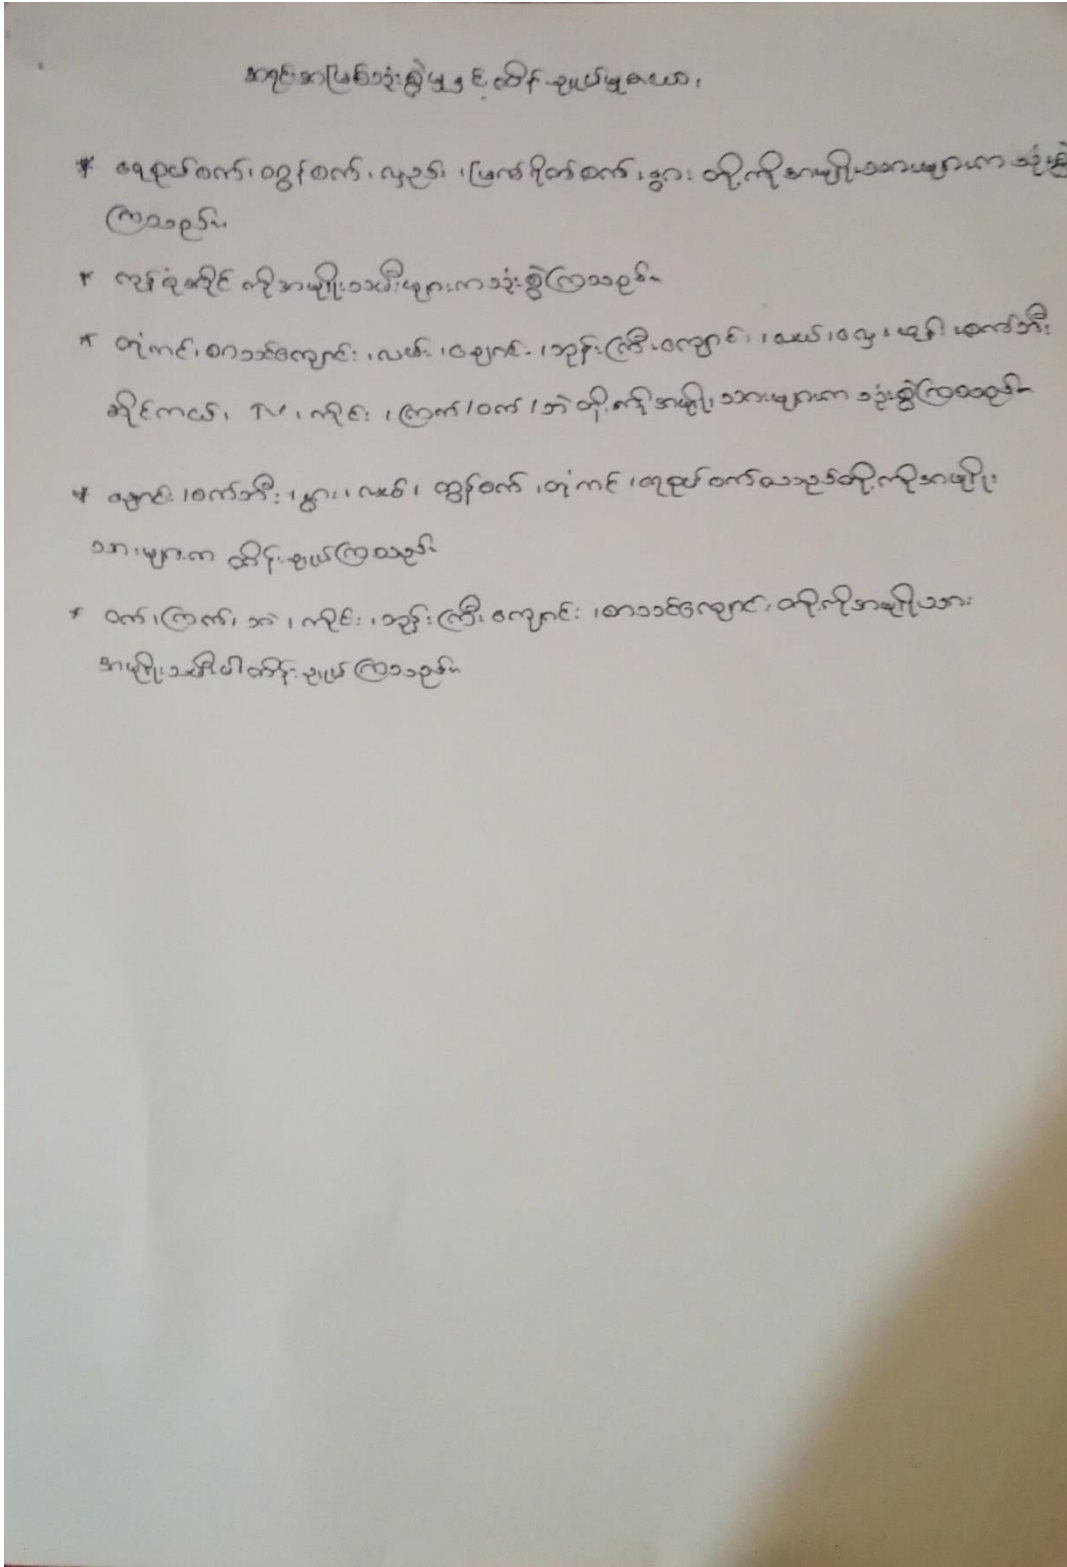 အရင်းအမြစ်သုံးစွဲမှုနှင့်ထိန်းချုပ်မှုဇယား
* ရေစုပ်စက်၊ ထွန်စက်၊ လှည်း၊ မြက်ရိတ်စက်၊ နွား တို့ကိုအမျိုးသားများကသုံးစွဲ
ကြသည်။
* ကုန်စုံဆိုင် ကိုအမျိုးသမီးများကသုံးစွဲကြသည်။
* တုံကင်၊ စာသင်ကျောင်း၊ လမ်း၊ ချောင်း၊ ဘုန်းကြီးကျောင်း၊ လယ်၊ လှေ၊ ၊ စက်ဘီး
ဆိုင်ကယ်၊ TV၊ ကိုင်း၊ ကြက်/ဝက်/ဘဲ တို့ကိုအမျိုးသားများကသုံးစွဲကြသည်။
* ချောင်း၊ စက်ဘီး၊ နွား၊ လယ်၊ ထွန်စက်၊ တုံကင်၊ ရေစုပ်စက်စသည်တို့ကိုအမျိုး
သားများက ထိန်းချုပ်ကြသည်။
* ဝက်၊ ကြက်၊ ဘဲ၊ ကိုင်း၊ ဘုန်းကြီးကျောင်း၊ စာသင်ကျောင်းတို့ကိုအမျိုးသား
အမျိုးသမီးပါထိန်းချုပ်ကြသည်။